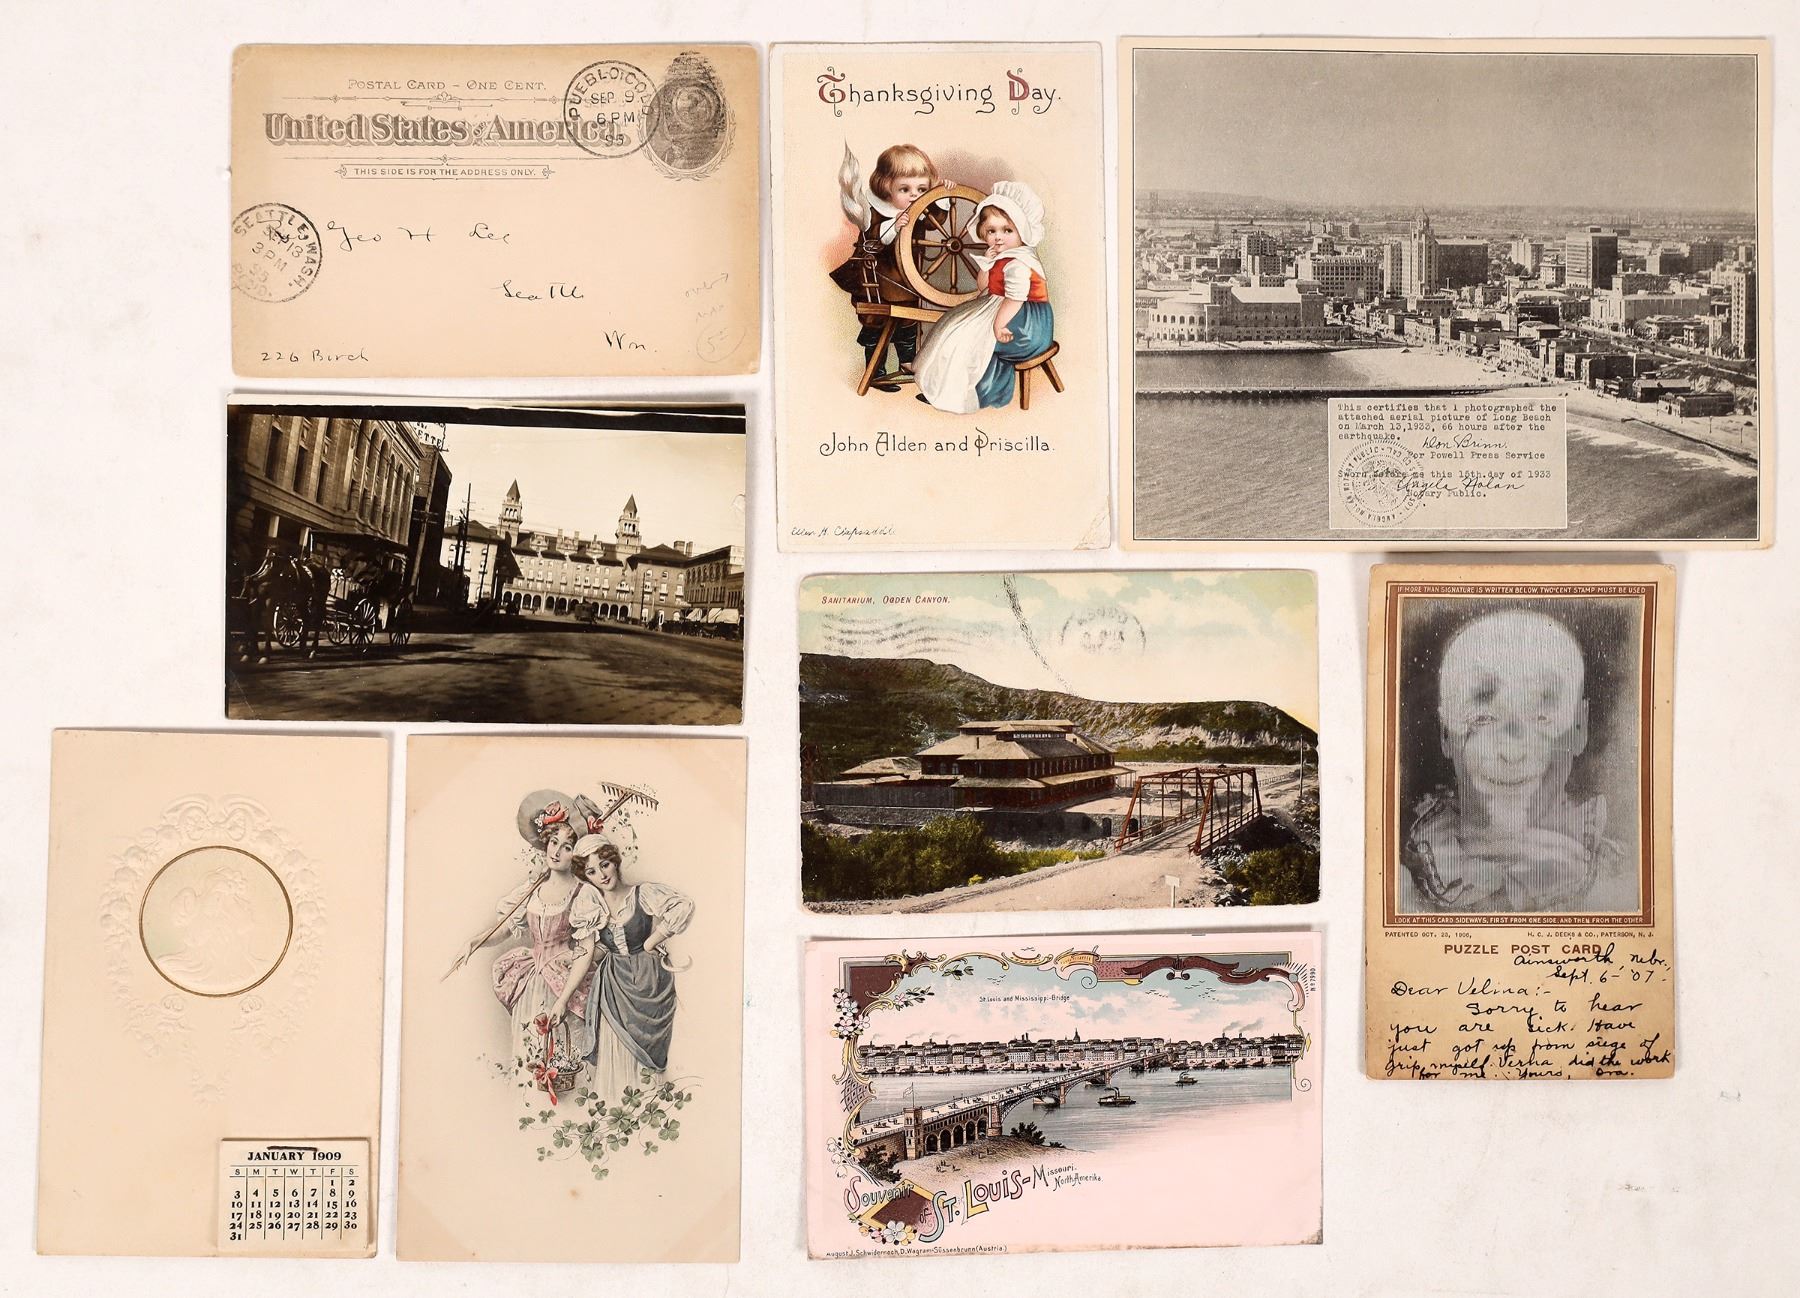 POSTAL CARD – ONE CENT.
United States of America
THIS SIDE IS FOR THE ADDRESS ONLY.
PUEBLO, COLO
SEP 9
6 PM
95
SEATTLE, WASH.
SEP 13
3 PM
95
REC'D.
Geo H Lee
Seattle
Wn.
226 Birch
over
5-
Thanksgiving Day.
John Alden and Priscilla.
Ellen H. Clapsaddle
This certifies that I photographed the
attached aerial picture of Long Beach
on March 13,1933, 66 hours after the
earthquake.
Don Brinn
For Powell Press Service
Sworn before me this 15th.day of 1933
Angela Nolan
Notary Public.
SANITARIUM, OGDEN CANYON.
OGDEN
IF MORE THAN SIGNATURE IS WRITTEN BELOW, TWO CENT STAMP MUST BE USED
LOOK AT THIS CARD SIDEWAYS, FIRST FROM ONE SIDE, AND THEN FROM THE OTHER
PATENTED OCT. 23, 1906, H. C. J. DEEKS & CO., PATERSON, N. J.
PUZZLE POST CARD
Ainsworth, Nebr.
Sept. 6-'07.
Dear Velma:-
Sorry to hear
you are sick. Have
just got up from siege of
grip myself. Verna did the work
for me. Yours, Ora.
JANUARY 1909
S M T W T F S
1 2
3 4 5 6 7 8 9
10 11 12 13 14 15 16
17 18 19 20 21 22 23
24 25 26 27 28 29 30
31
St. Louis and Mississippi-Bridge
No 7990
Souvenir
of St. Louis- Missouri.
North Amerika.
August J. Schwidernoch, D. Wagram-Süssenbrunn (Austria.)